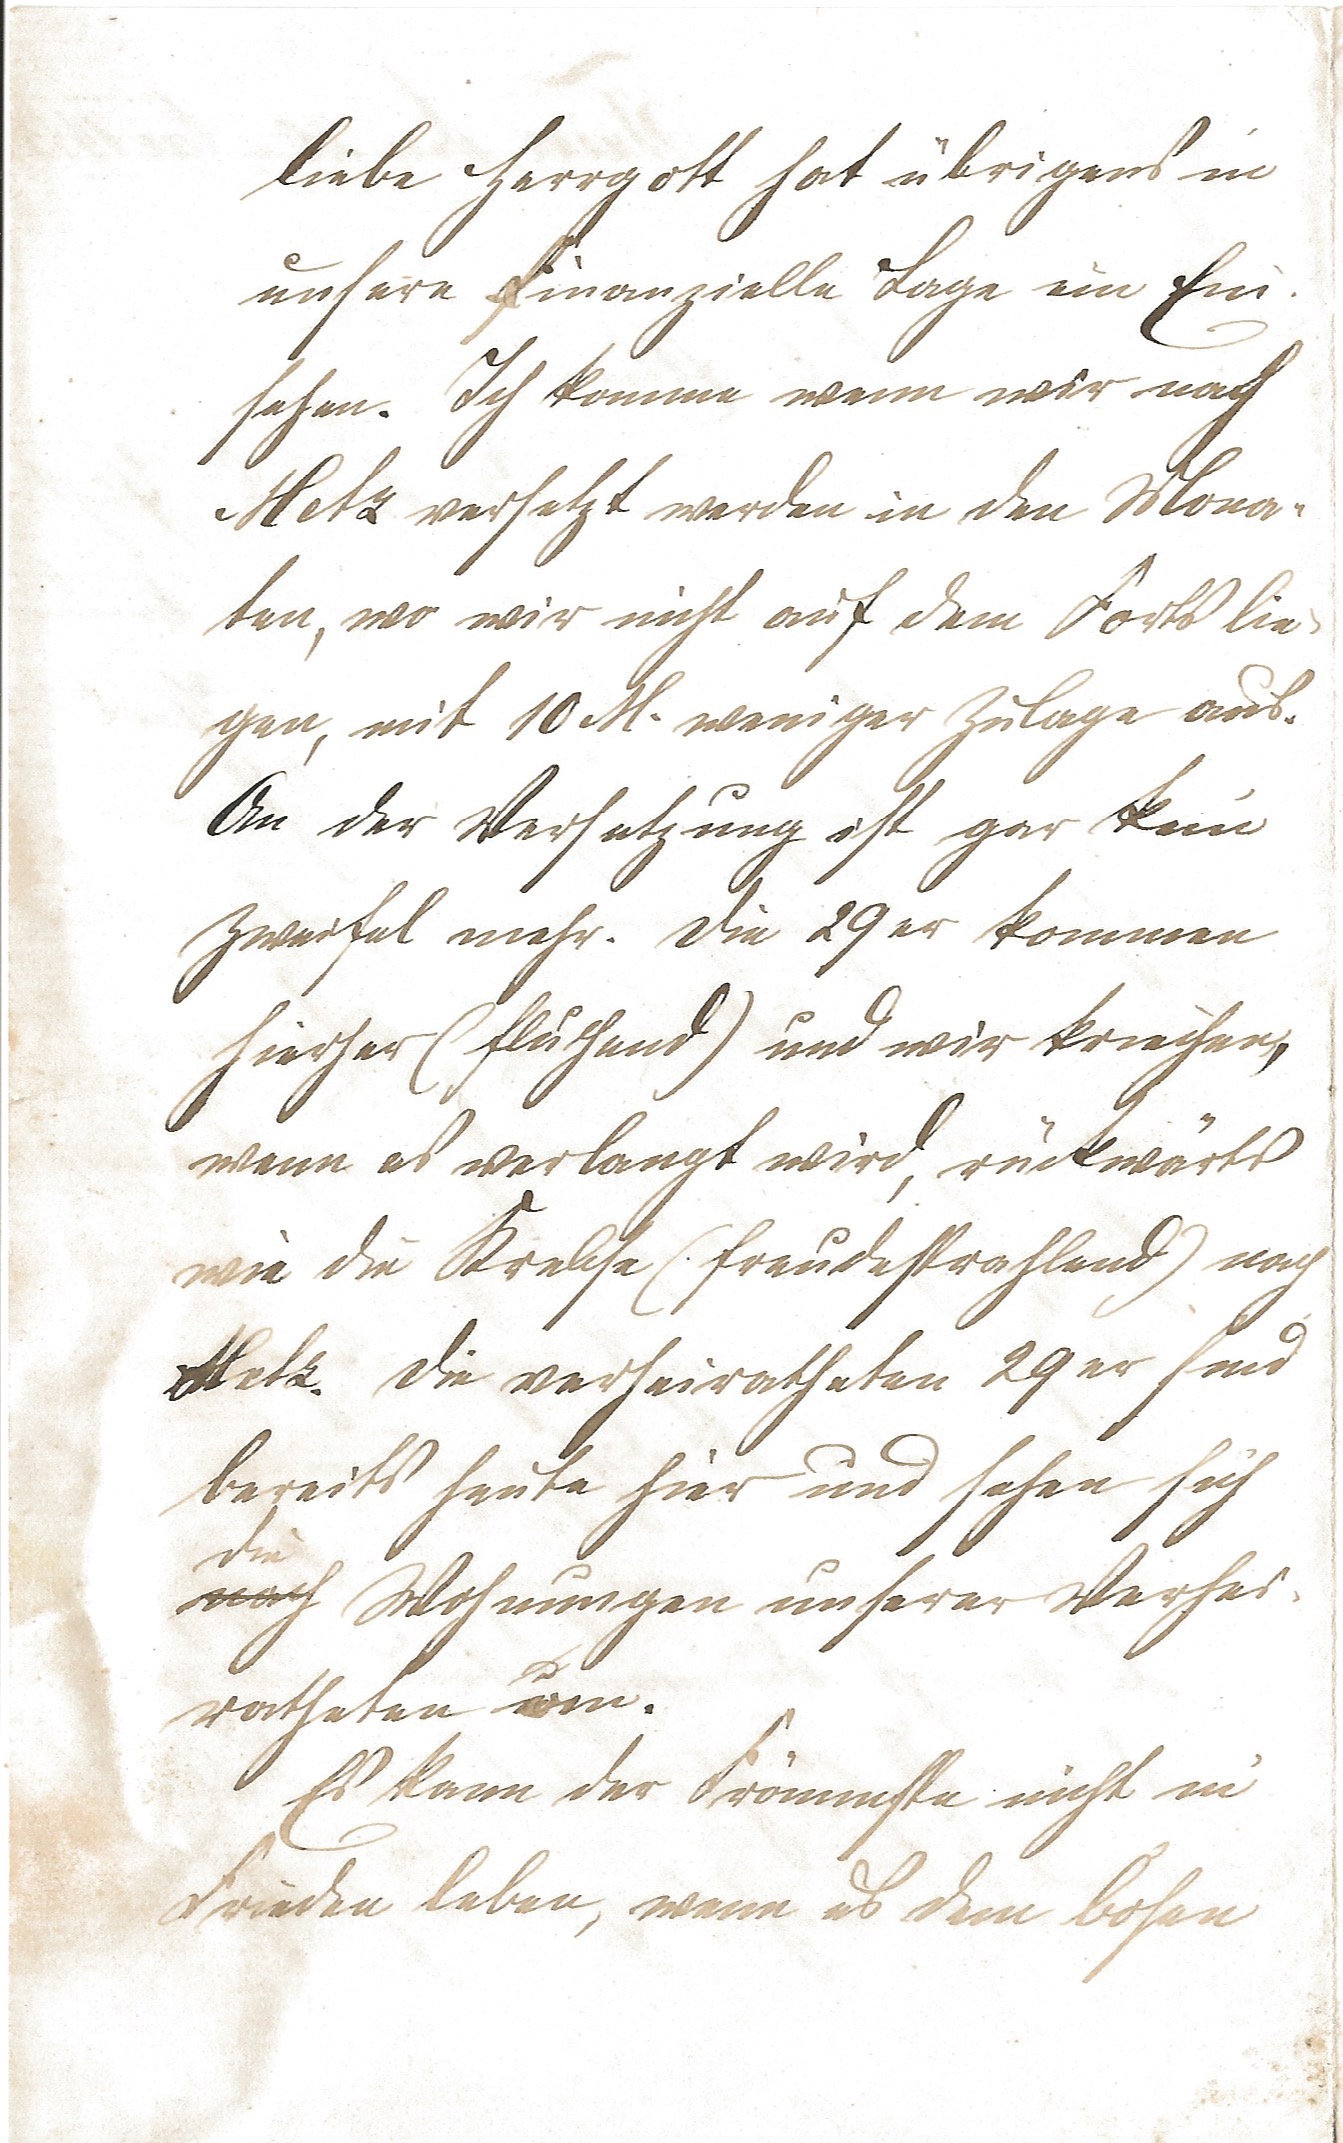 liebe Herrgott hat übrigens in
unsere finanzielle Lage ein Ein-
sehen. Ich komme wenn wir nach
Metz versetzt werden in den Mona-
ten, wo wir nicht auf dem Forts lie-
gen, mit 10 M. weniger Zulage aus.
An der Versetzung ist gar kein
Zweifel mehr. Die 29er kommen
hierher (fluchend) und wir kriechen,
wenn es verlangt wird, rückwärts
wie die Krebse (freudestrahlend) nach
Metz. Die verheiratheten 29er sind
bereits heute hier und sehen sich
die
nach Wohnungen unserer Verhei-
ratheten an.
Es kann der Frömmste nicht in
Frieden leben, wenn es dem bösen